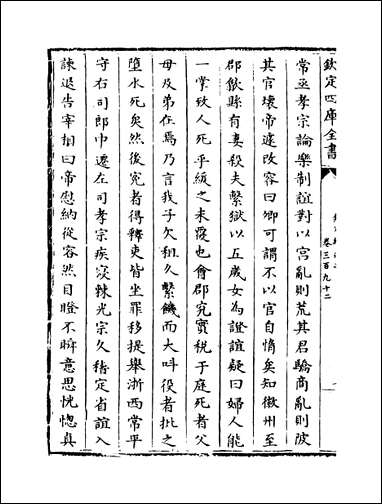 欽定四庫全書
卷三百九十二
常丞孝宗論樂制誼對以宮亂則荒其君驕商亂則陂
其官壞帝遽改容曰卿可謂不以官自惰矣知徽州至
郡歙縣有妻殺夫繫獄以五歲女為證誼疑曰婦人能
一掌致人死乎緩之未覆也會郡究實稅于庭死者父
母及弟在焉乃言我子欠租久繫饑而大叫役者批之
墮水死矣然後寃者得釋吏皆坐罪移提舉浙西常平
守右司郎中遷左司孝宗疾寖棘光宗久稽定省誼入
諫退告宰相曰帝慰納從容然目瞪不瞬意思恍惚真